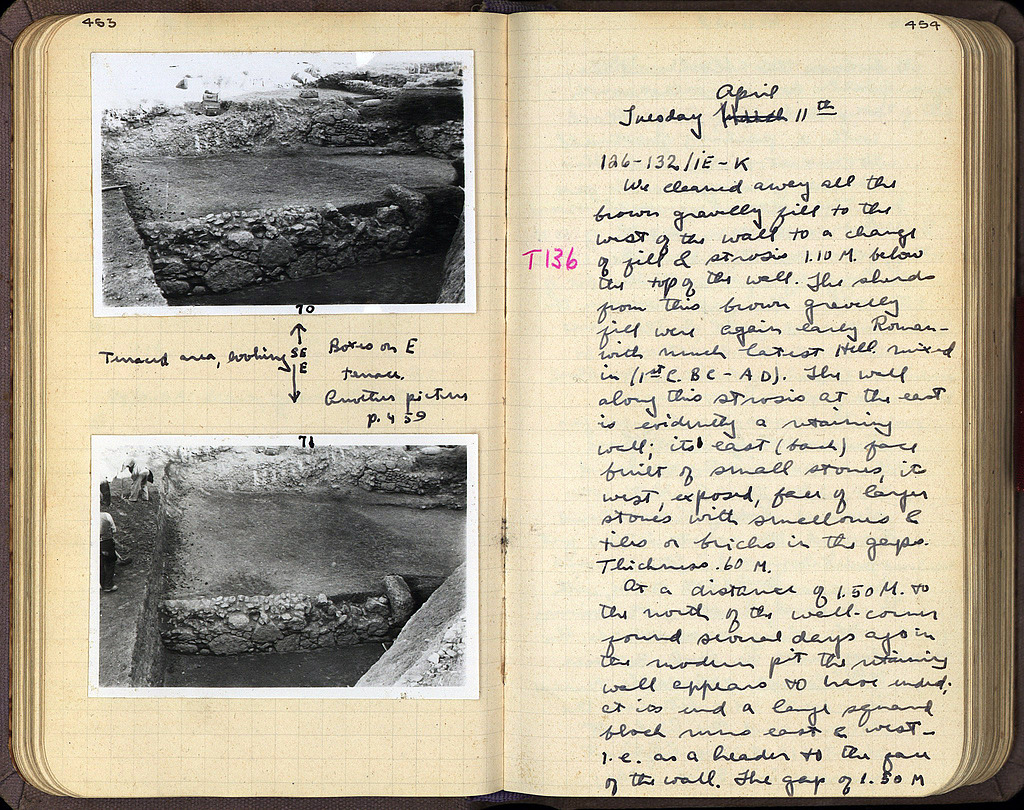 453
70
Terraced area, looking SE
E
Boxes on E
terrace.
Another picture
p. 459
71
454
April
Tuesday March 11th
126-132/ΙΕ-Κ
We cleaned away all the
brown gravelly fill to the
west of the wall to a change
T136
of fill & strosis 1.10 M. below
the top of the wall. The sherds
from this brown gravelly
fill were again early Roman-
with much latest Hell. mixed
in (1st C. BC - AD). The wall
along this strosis at the east
is evidently a retaining
wall; its east (back) face
built of small stones, its
west, exposed, face of larger
stones with small ones &
tiles or bricks in the gaps.
Thickness .60 M.
At a distance of 1.50 M. to
the north of the wall-corner
found several days ago in
the modern pit the retaining
wall appears to have ended;
at its end a large squared
block runs east & west-
i.e. as a header to the face
of the wall. The gap of 1.50 M